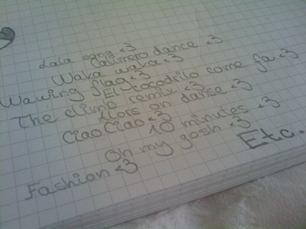 Lala song <3
Calimero dance <3
Waka waka <3
Wawing flag <3
El cocodrilo come fa <3
The climb remix <3
Alors on danse <3
Ciao Ciao <3
10 minutes <3
Oh my gosh <3
Fashion <3
Etc.